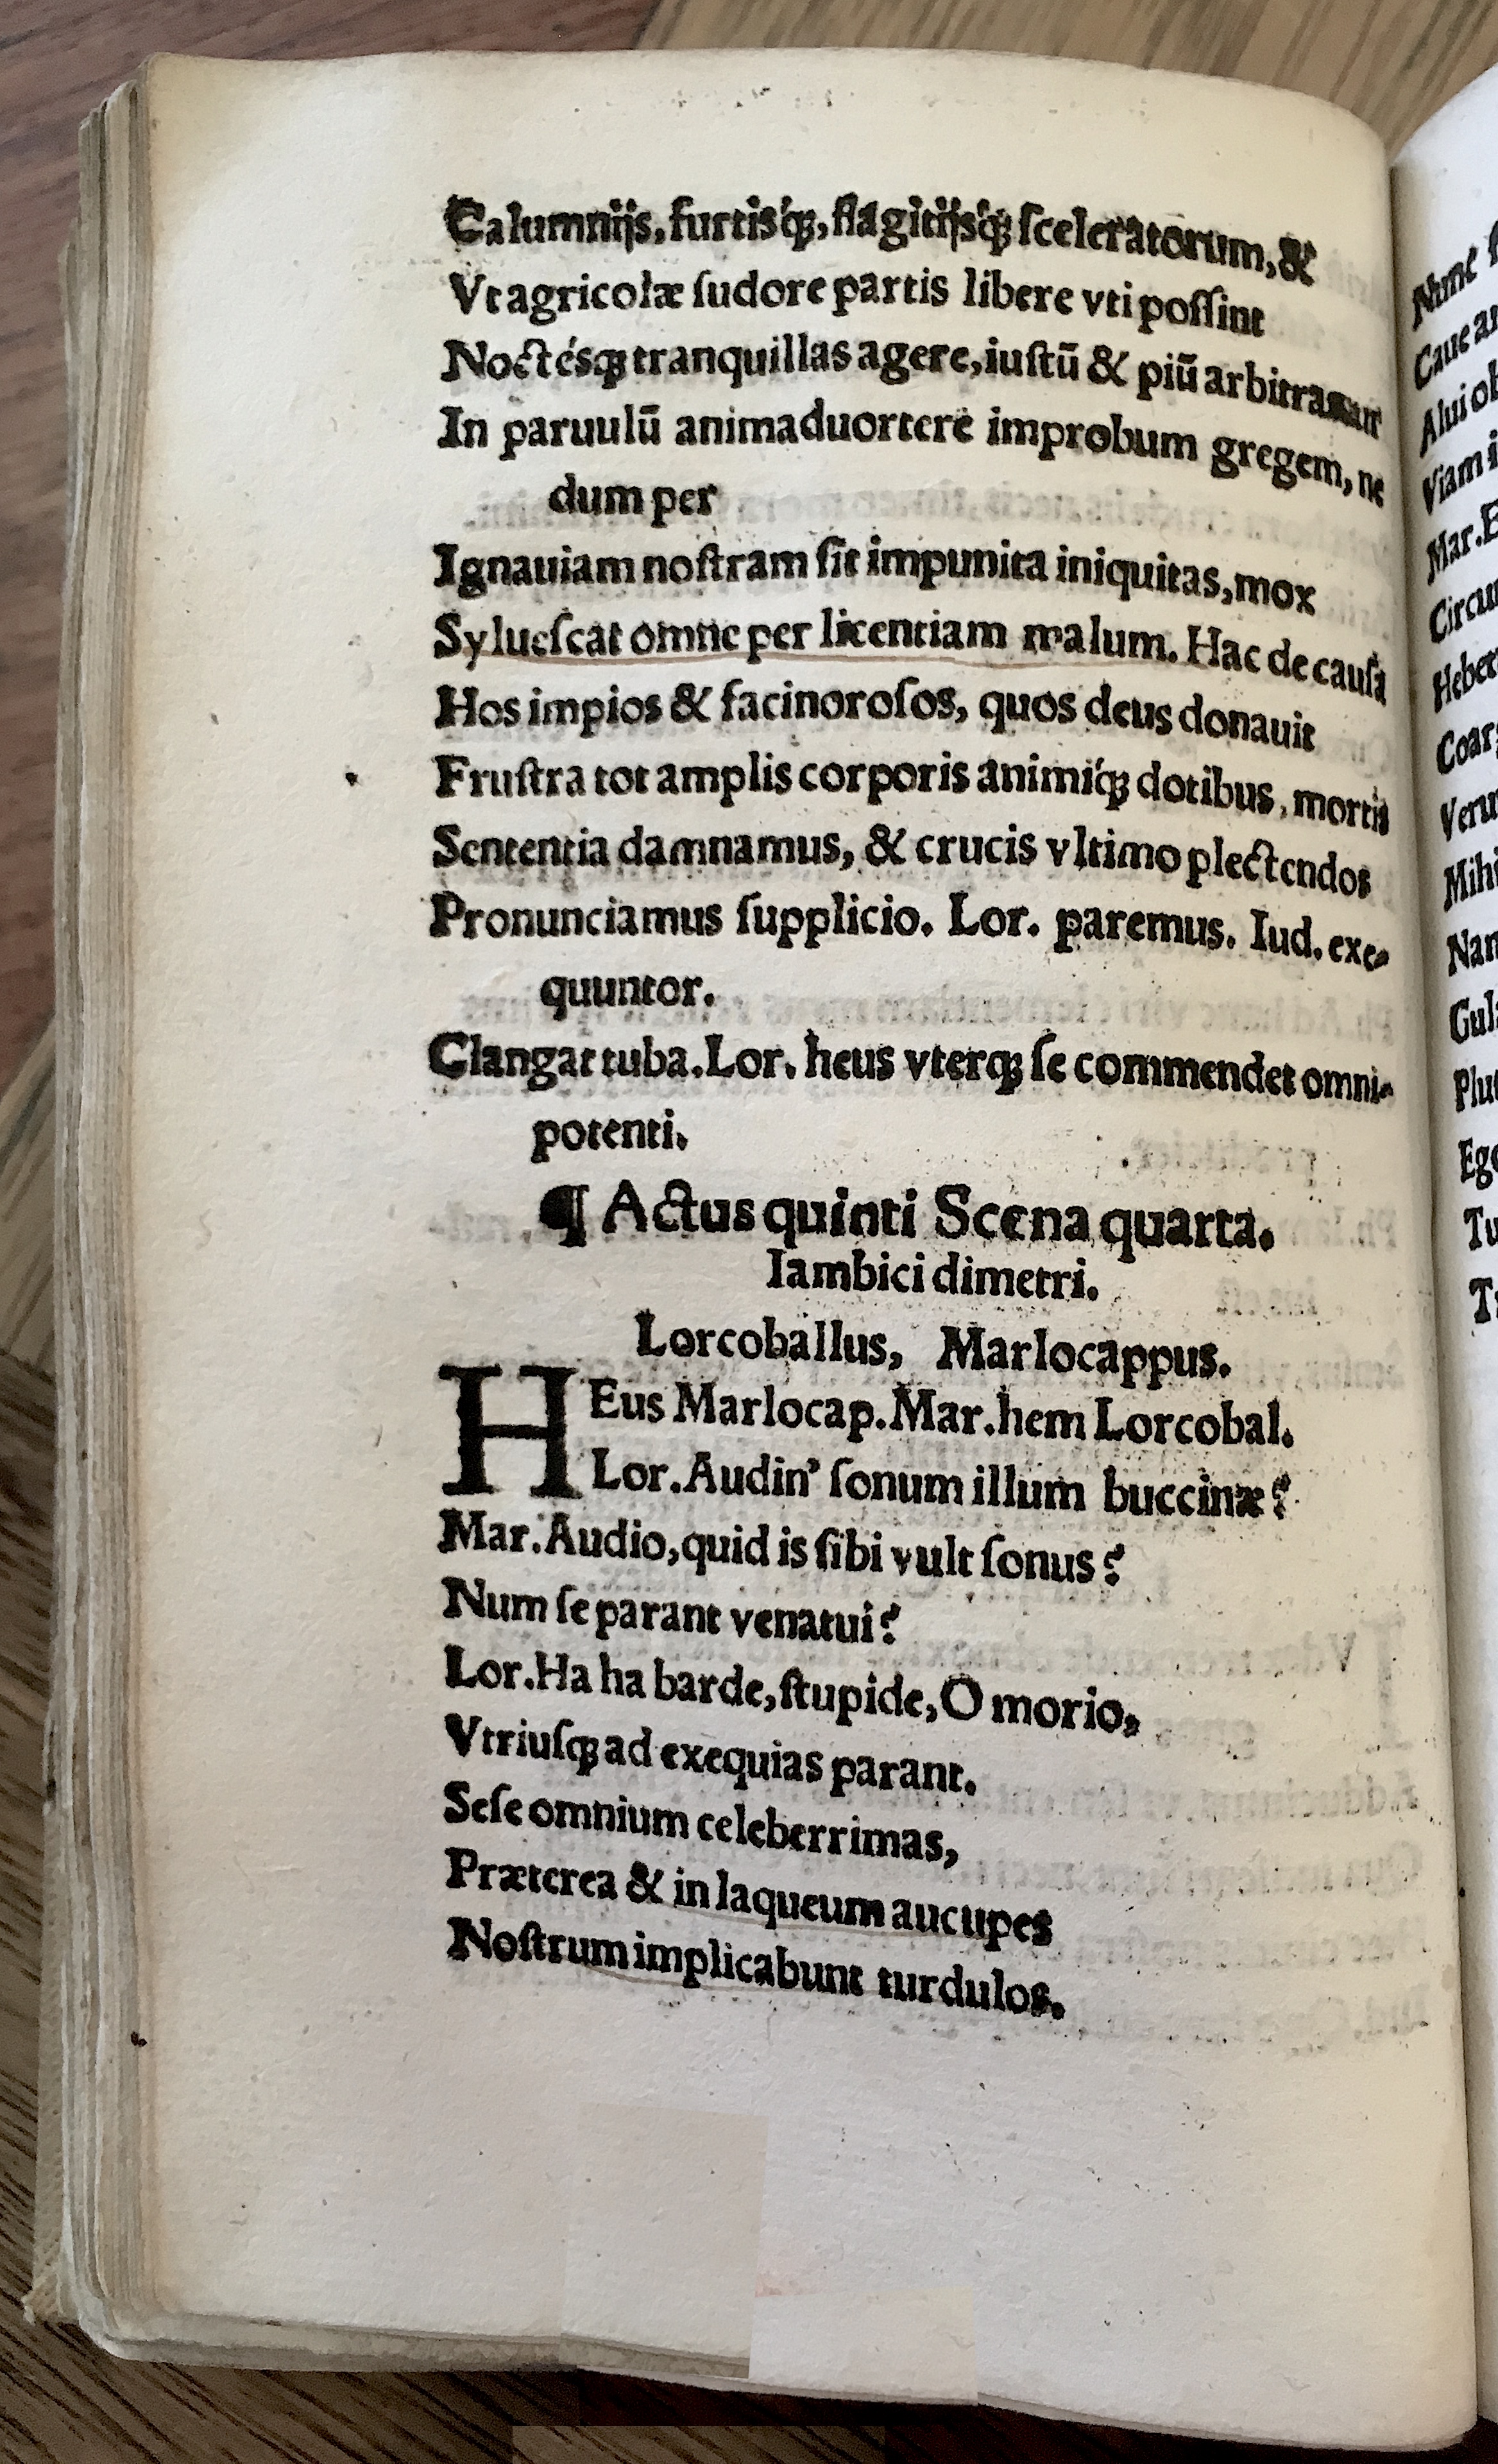 Calumnijs, furtisq́ꝫ, flagitijsq́ꝫ ſceleratorum, &
Vt agricolæ ſudore partis libere vti poſſint
Noctésqꝫ tranquillas agere, iuſtū & piū
In paruulū animaduortere improbum gregem, ne
dum per
Ignauiam noſtram ſit impunita iniquitas, mox
Sylueſcat omne per licentiam malum. Hac de cauſa
Hos impios & facinoroſos, quos deus donauit
Fruſtra tot amplis corporis animiq́ꝫ dotibus, mortis
Sententia damnamus, & crucis vltimo plectendos
Pronunciamus ſupplicio. Lor. paremus. Iud. exe-
quuntor.
Clangat tuba. Lor. heus vterqꝫ ſe commendet omni-
potenti.
¶ Actus quinti Scena quarta.
Iambici dimetri.
Lorcoballus, Marlocappus.
HEus Marlocap. Mar. hem Lorcobal.
Lor. Audin' ſonum illum buccinæ?
Mar. Audio, quid is ſibi vult ſonus?
Num ſe parant venatui?
Lor. Ha ha barde, ſtupide, O morio,
Vtriuſqꝫ ad exequias parant.
Seſe omnium celeberrimas,
Præterea & in laqueum aucupes
Noſtrum implicabunt turdulos.
Nunc
Caue
Alui
Viam
Mar.
Mihi